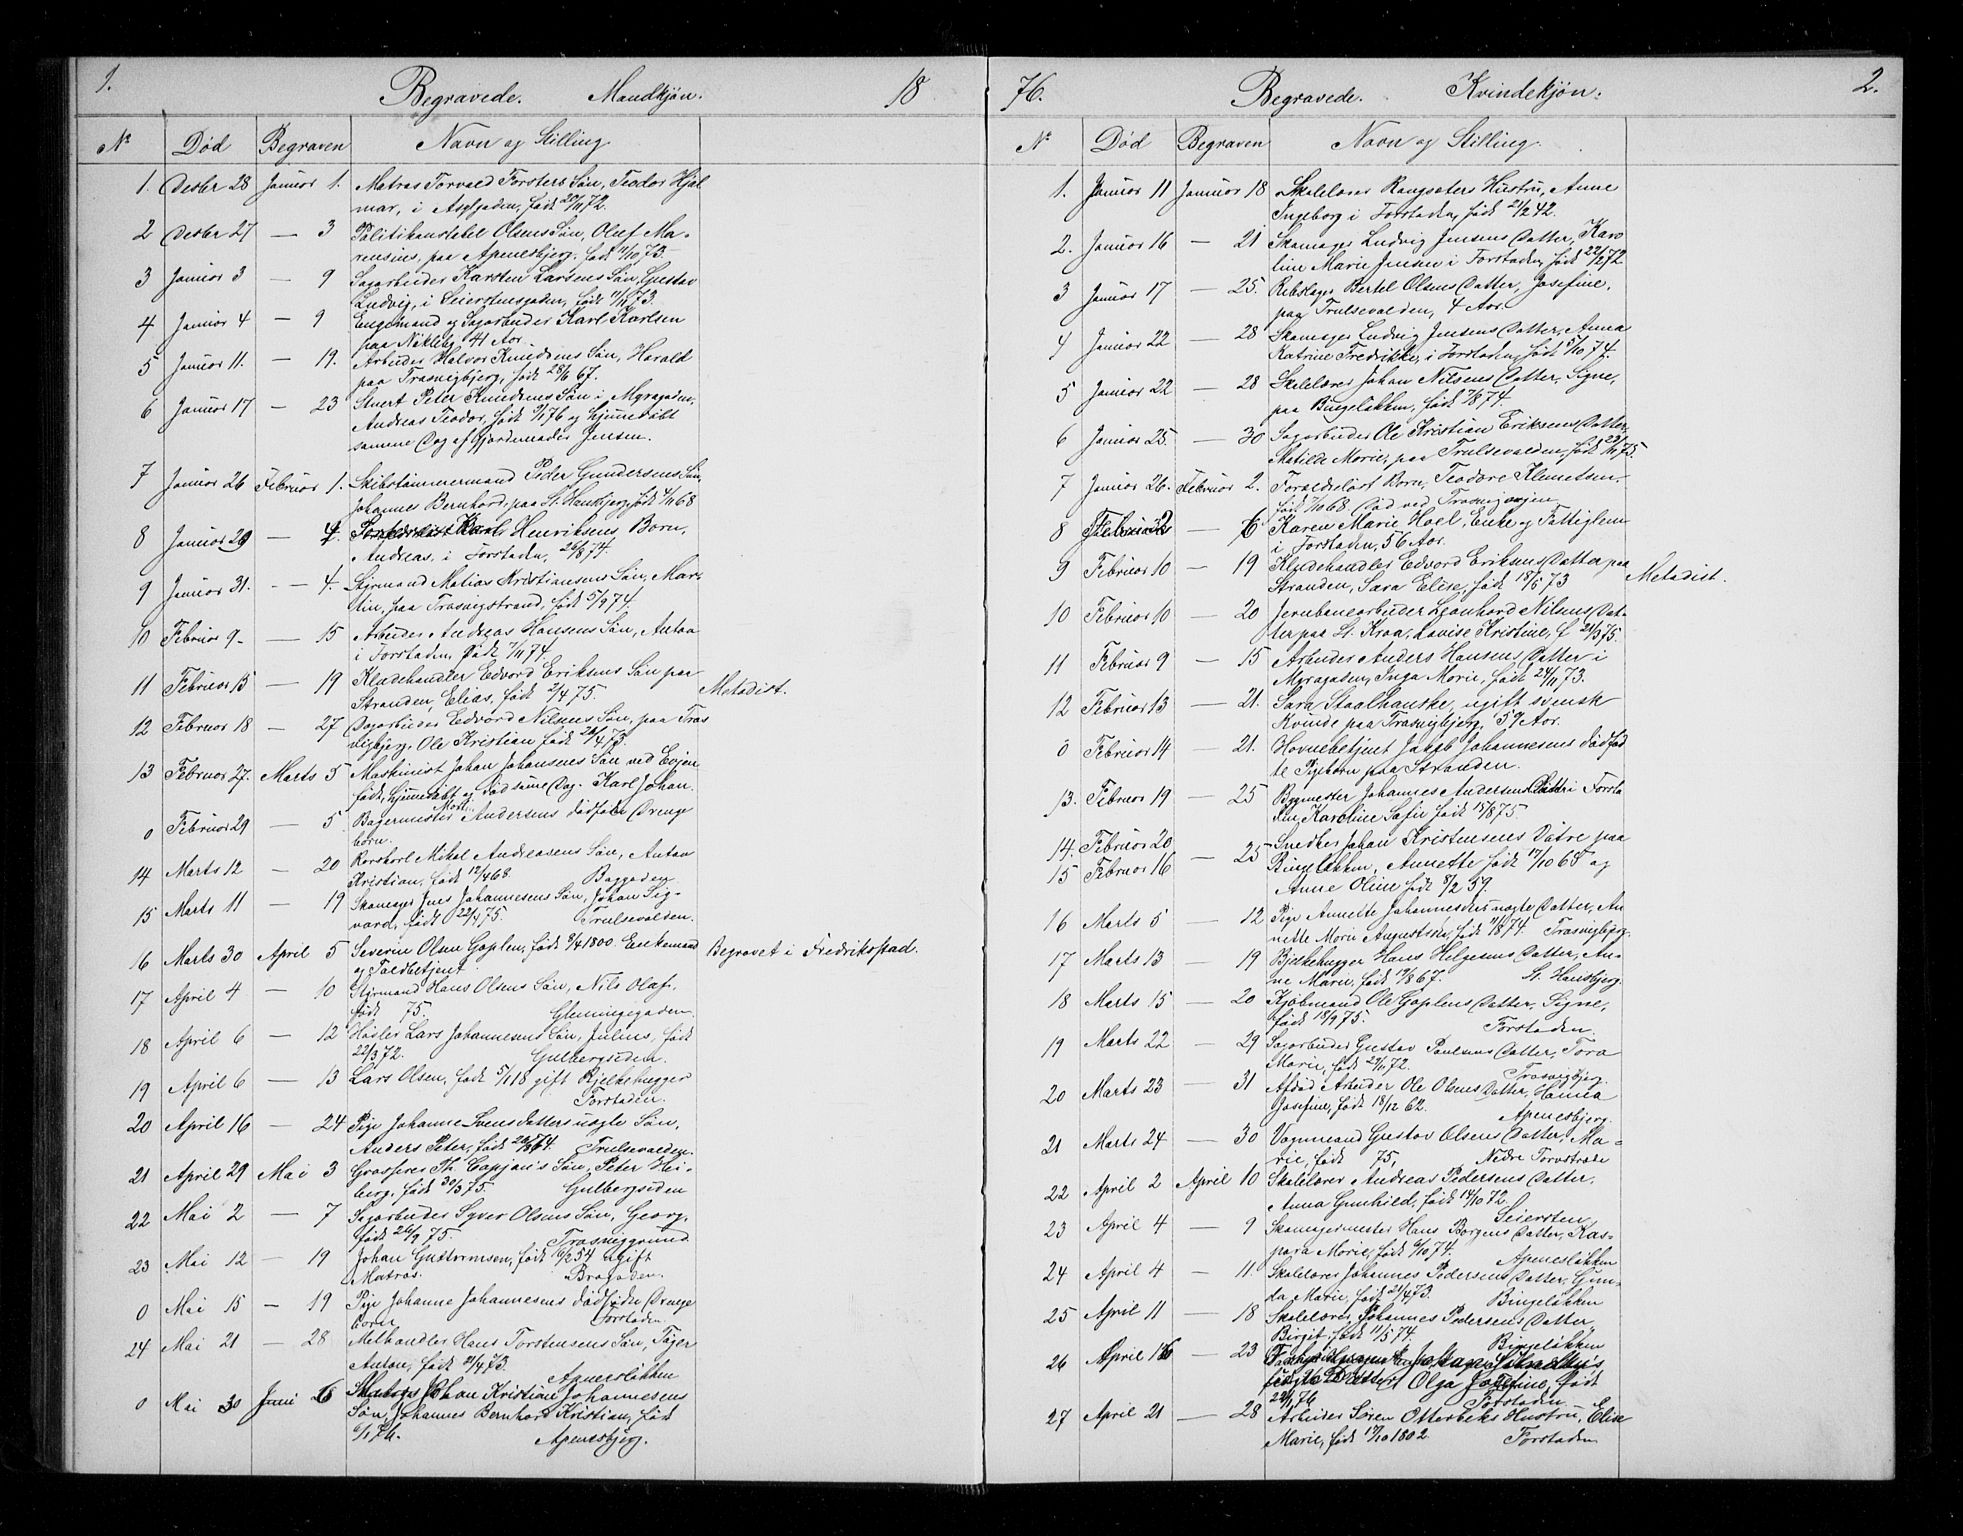 1. Begravede. Mandkjøn. 18
No Død Begraven Navn og Stilling
1. Desbr 28 Januar 1. Matros Torvald Forsters Søn, Teodor Hjal
mar, i født 72.
2 Desbr 27 — 3 Politikonstabel Olsens Søn, Oluf Ma-
rensius, paa Apenesbjerg, født 11/10 73.
3 Januar 3 — 9 Sagarbeider Karsten Larsens Søn, Gustav
Ludvig, i Seierstensgaden, født 73.
4 Januar 4 — 9 Engemand og Sagarbeider Karl Karlsen
paa Nøkleby 41 Aar.
5 Januar 11. — 19. Arbeider Halvor Knudsens Søn, Harald
paa Trosvigbjerg, født 28/6 67.
6 Januar 17 — 23 Stuert Peter Knudsens Søn i Myragaden,
Andreas Teodor, født 76 og hjemmedøbt
samme Dag af Gjordemoder Jensen.
7 Januar 26 Februar 1. Skibstømmermand Peder Gundersens Søn,
Johannes Bernhard, paa St. Hansbjerg, født 68
8 Januar 29 — 4. Henriksens Barn,
Andreas, i Forstaden, 26/8 74.
9 Januar 31. — 4. Styrmand Matias Kristiansens Søn, Mar-
tin, paa Trosvigstrand, født 5/9 74.
10 Februar 9 — 15 Arbeider Andreas Hansens Søn, Anton
i Forstaden, født 7/11 74.
11 Februar 15 — 19 Klædehandler Edvard Eriksens Søn paa
Stranden, Elias, født 2/4 75. Metodist.
12 Februar 18 — 27 Dagarbeider Edvard Nilsens Søn, paa Tros
vigbjerg, Ole Kristian født 28/4 73.
13 Februar 27. Marts 5 Maskinist Johan Johansens Søn ved Evjen
født, hjemmedøbt og død samme Dag. Karl Johan.
0 Februar 29 — 5. Bagermester Andersens dødfødte Drenge
barn.
14 Marts 12 — 20 Rorskarl Mikal Andreasens Søn, Anton
Kristian, født 12/4 68. Baggaden
15 Marts 11 — 19 Skomager Jens Johannesens Søn, Johan Sig-
vard, født 22/4 75. Trulsevolden.
16 Marts 30 April 5 Severin Olsen Gaplen, født 9/4 1800. Enkemand Begravet i Fredrikstad.
og Toldbetjent.
17 April 4 — 10 Styrmand Hans Olsens Søn, Nils Olaf,
født 75. Glemmengegaden
18 April 6 — 12 Høker Lars Johannesens Søn, Julius, født
22/3 72. Gulbergsiden.
19 April 6 — 13 Lars Olsen, født 5/1 18 gift Bjelkehugger
Forstaden.
20 April 16 — 24 Pige Johanne Svensdatters uægte Søn,
Anders Peter, født 64. Trulsevolden.
21 April 29 Mai 3 Grosserer Th. Capjon's Søn, Peter Hei-
berg, født 30/3 75. Gulbergsiden
22 Mai 2 — 7 Sagarbeider Syver Olsens Søn, Georg,
født 26/9 75. Trosviggrund
23 Mai 12 — 19 Johan Guttormsen, født 6/2 54 ugift
Matros. Brogaden.
0 Mai 15 — 19 Pige Johanne Johannesens dødfødte Drenge
barn Forstaden
24 Mai 21 — 28 Melhandler Hans Torstensens Søn,
Anton, født 21/4 73. Apenesløkken
0 Mai 30 Juni 6 Johan Kristian Johannesens
Søn, Johannes Bernhard Kristian, født
6/1 76. Apenesbjerg.
76. Begravede. Kvindekjøn. 2.
No Død Begraven Navn og Stilling.
1. Januar 11 Januar 18 Skolelærer Rangsæters Hustru, Anne
Ingeborg i Forstaden, født 21/2 42.
2. Januar 16 — 21 Skomager Ludvig Jensens Datter, Karo
line Marie Jensen i Forstaden, født 22/12 72
3 Januar 17 — 25. Rebslager Bertel Olsens Datter, Josefine,
paa Trulsevolden, 4 Aar.
4 Januar 22 — 28 Skomager Ludvig Jensens Datter, Anna
Katrine Fredrikke, i Forstaden, født 5/10 74.
5 Januar 22 — 28 Skolelærer Johan Nilsens Datter, Signe,
paa Bingeløkken, født 7/8 74.
6 Januar 25 — 30 Sagarbeider Ole Kristian Eriksens Datter,
Matilde Marie, paa Trulsevolden, født 75.
7 Januar 26. Februar 2. Forældreløst Barn, Teodore Klemetsen,
født 68. Død ved Trosvig
8 Februar 2 — 6 Karen Marie Hoel, Enke og Fattiglem
i Forstaden, 56 Aar.
9 Februar 10 — 19 Klædehandler Edvard Eriksens Datter paa
Stranden, Sara Elise, født 18/5 73 Metodist.
10 Februar 10 — 20 Jernbanearbeider Leonhard Nilsens Dat-
ter paa St. Kroa, Lovise Kristine, f 21/9 75.
11 Februar 9 — 15 Arbeider Anders Hansens Datter i
Myragaden, Inga Marie, født 24/11 73.
12 Februar 13 — 21. Sara Staalhanske, ugift svensk
Kvinde paa Trosvigbjerg, 57 Aar.
0 Februar 14 — 21. Havnebetjent Jakob Johannesens dødfød
te Pigebarn paa Stranden.
13. Februar 19 — 25 Bygmester Johannes Andersens Datter i Forsta
den, Karoline Sofie født 15/8 75.
14. Februar 20 Snedker Johan Kristensens Døtre paa
15 Februar 16 — 25 Bingeløkken, Annette født 17/10 68 og
Anne Oline født 8/2 59.
16 Marts 5 — 12 Pige Annette Johannesens uægte Datter, An
nette Marie Augusta, født 74. Trosvigbjerg.
17 Marts 13 — 19 Bjelkehugger Hans Helgesens Datter, An-
ne Marie, født 19/8 67. St. Hansbjerg.
18 Marts 15 — 20 Kjøbmand Ole Gaplens Datter, Signe,
født 18/9 75. Forstaden.
19 Marts 22 — 29 Sagarbeider Gustav Paulsens Datter, Tora
Marie, født 72. Trosvigbjerg.
20 Marts 23 — 31 Afdød Arbeider Ole Olsens Datter, Hanna
Josefine, født 18/12 62. Apenesbjerg.
21 Marts 24 — 30 Vognmand Gustav Olsens Datter, Ma-
rie, født 75, Nedre Torvstræde
22 April 2 April 10 Skolelærer Andreas Pedersens Datter,
Anna Gunhild, født 14/10 72.
Seiersten
23 April 4 — 9 Skomagermester Hans Borgens Datter, Kas-
para Marie, født 6/10 74. Apenesløkken
24 April 4 — 11. Skolelærer Johannes Pedersens Datter, Gun-
da Marie, født 21/4 73. Bingeløkken
25 April 11 — 18 Skolelærer Johannes Pedersens Datter,
Birgit, født 11/5 74. Bingeløkken
26 April 16 — 23
Olga Josefine, født
22/1 76 Forstaden.
27 April 21 — 28 Arbeider Søren Otterbeks Hustru, Elise
Marie, født 17/10 1802. Forstaden